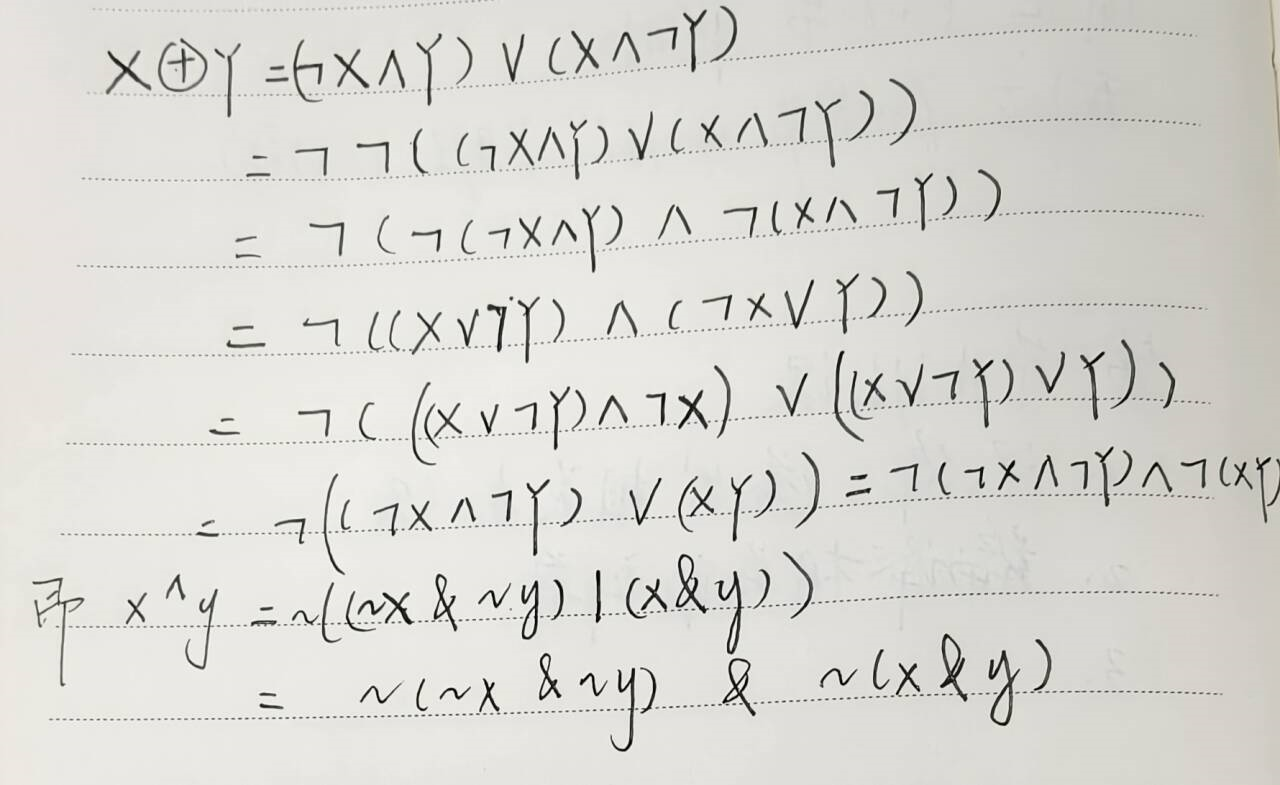 X⊕Y =(¬X∧Y) ∨ (X∧¬Y)
= ¬¬((¬X∧Y)∨(X∧¬Y))
= ¬(¬(¬X∧Y) ∧ ¬(X∧¬Y))
= ¬((X∨¬Y) ∧ (¬X∨Y))
= ¬(((X∨¬Y)∧¬X) ∨ ((X∨¬Y)∨Y))
= ¬((¬X∧¬Y) ∨ (XY)) = ¬(¬X∧¬Y)∧¬(XY)
即 x^y = ~((~x & ~y) | (x&y))
= ~(~x & ~y) & ~(x & y)